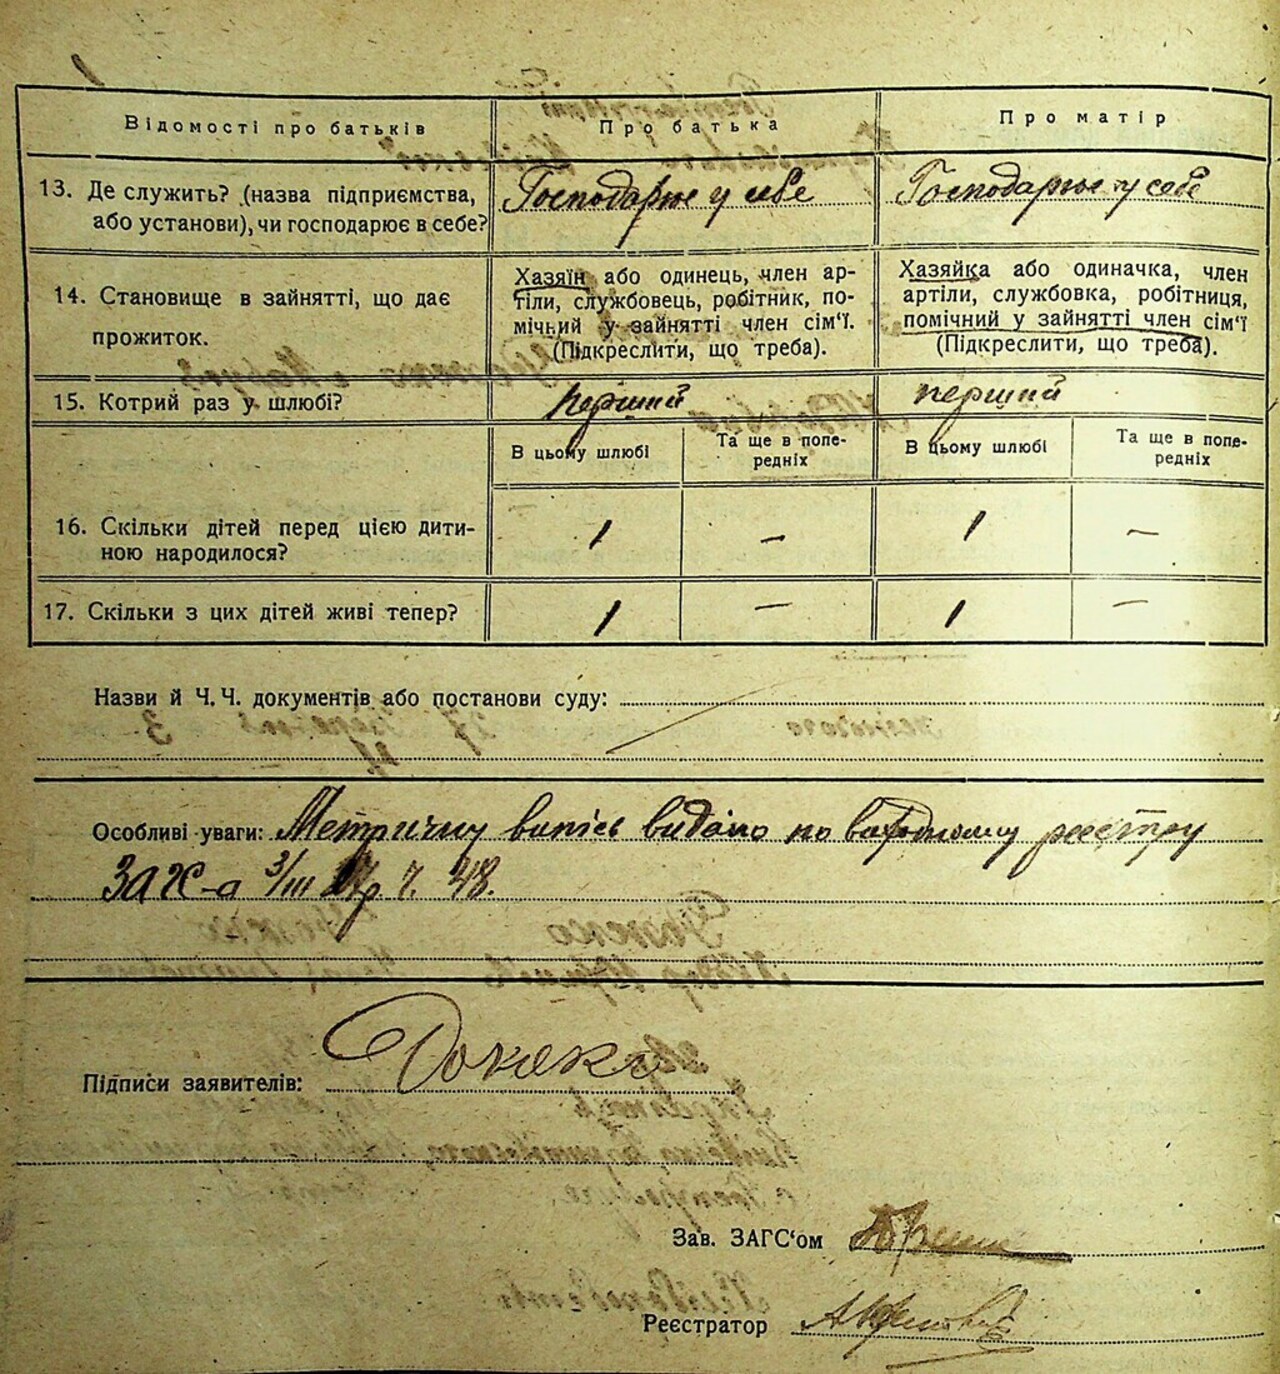 Відомості про батьків
Про батька
Про матір
13. Де служить? (назва підприємства,
або установи), чи господарює в себе?
Господарює у себе
Господарює у себе
14. Становище в зайнятті, що дає
прожиток.
Хазяїн або одинець, член ар-
тіли, службовець, робітник, по-
мічний у зайнятті член сім'ї.
(Підкреслити, що треба).
Хазяйка або одиначка, член
артіли, службовка, робітниця,
помічний у зайнятті член сім'ї
(Підкреслити, що треба).
15. Котрий раз у шлюбі?
перший
перший
В цьому шлюбі
Та ще в попе-
редніх
В цьому шлюбі
Та ще в попе-
редніх
16. Скільки дітей перед цією дити-
ною народилося?
1
—
1
—
17. Скільки з цих дітей живі тепер?
1
—
1
—
Назви й Ч. Ч. документів або постанови суду:
Особливі уваги: Метричну випісь видано по реєстру
3/III р. ч. 48.
Підписи заявителів:
Зав. ЗАГС'ом
Реєстратор